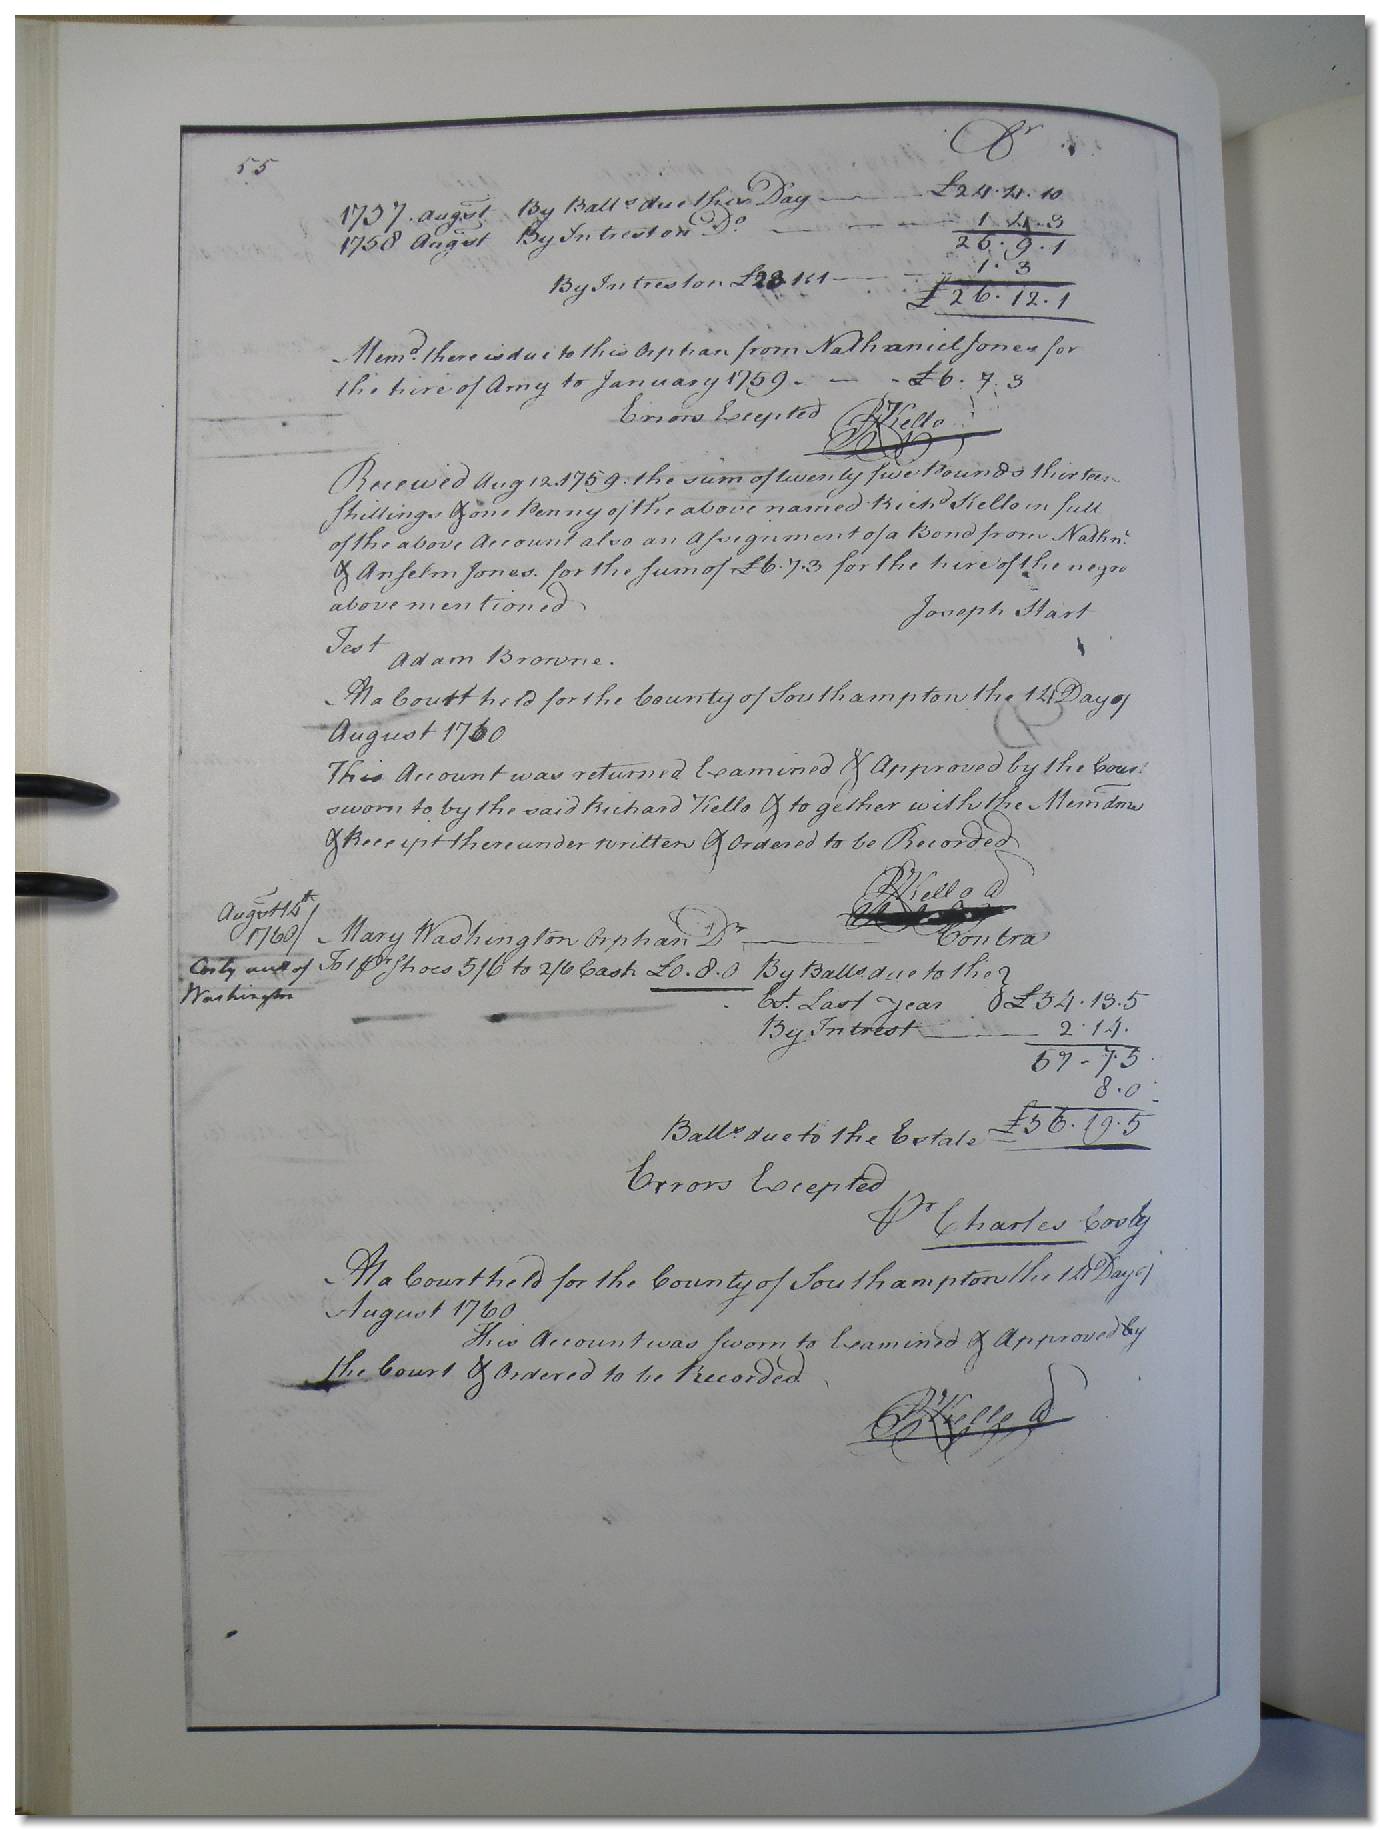 55
Cr
1757. Augst By Balle. due this Day £24.4.10
1758 Augst By Intrest on Do 1.4.3
25.9.1
By Intrest on £23 1.3
£26.12.1
Memd. there is due to this Orphan from Nathaniel Jones for
the hire of Amy to January 1759 - - - £6.7.3
Errors Excepted Rd Kello
Received Aug 12. 1759. the sum of twenty five Pounds thirteen
Shillings & one Penny of the above named Richd Kello in full
of the above Account also an Assignment of a Bond from Nathn.
& Anselm Jones. for the sum of £6.7.3 for the hire of the negro
above mentioned Joseph Hart
Test
Adam Browne.
At a Court held for the County of Southampton the 14 Day of
August 1760
This Account was returned Examined & Approved by the Court
sworn to by the said Richard Kello & together with the Memdm
& Receipt thereunder written & Ordered to be Recorded
Rd Kello Cl
August 14th
1760
Mary Washington Orphan Dr Contra
Cosby acct of
Washington
To 1 pr Shoes 5/6 to 2/6 Cash £0.8.0 By Balle. due to the
Et. Last year £54.13.5
By Intrest 2.14.
57.7.5
8.0
Balle due to the Estate £56.19.5
Errors Excepted
Pr Charles Cosby
At a Court held for the County of Southampton the 14 Day of
August 1760
This Account was sworn to Examined & Approved by
the Court & Ordered to be Recorded
Rd Kello Cl